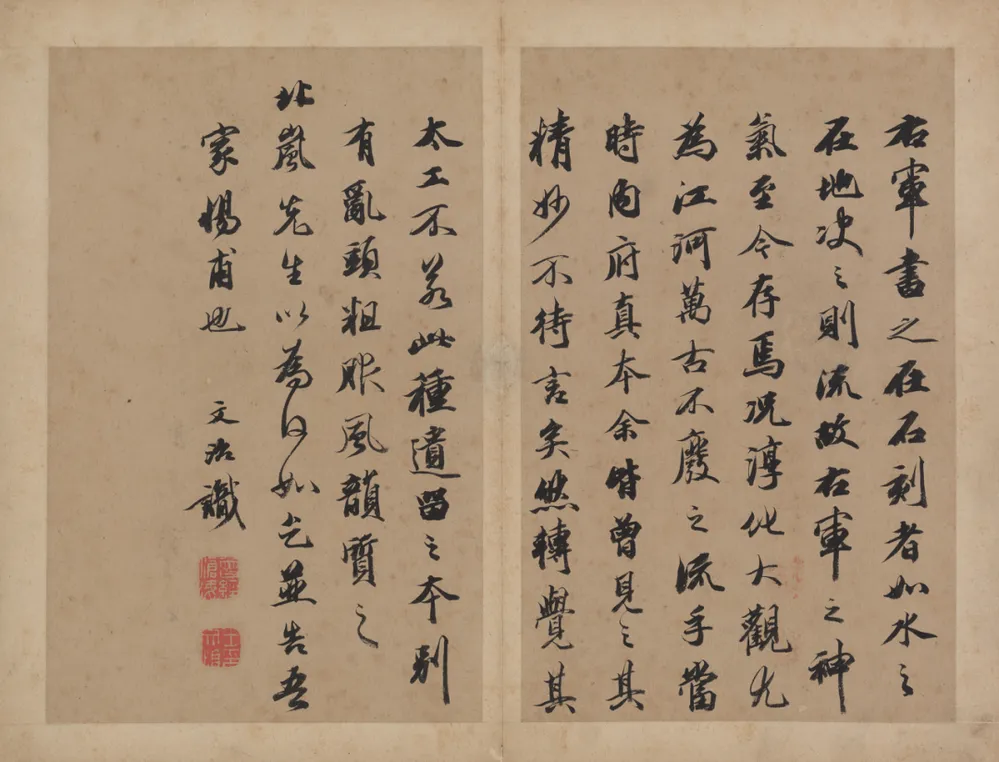 右軍書之在石刻者如水之
在地決之則流故右軍之神
氣至今存焉況淳化大觀尤
為江河萬古不廢之流乎當
時內府真本余皆曾見之其
精妙不待言矣然轉覺其
太工不若此種遺留之本別
有亂頭粗眼風韻質之
北嵐先生以為何如乞並告吾
家惕甫也
文治識